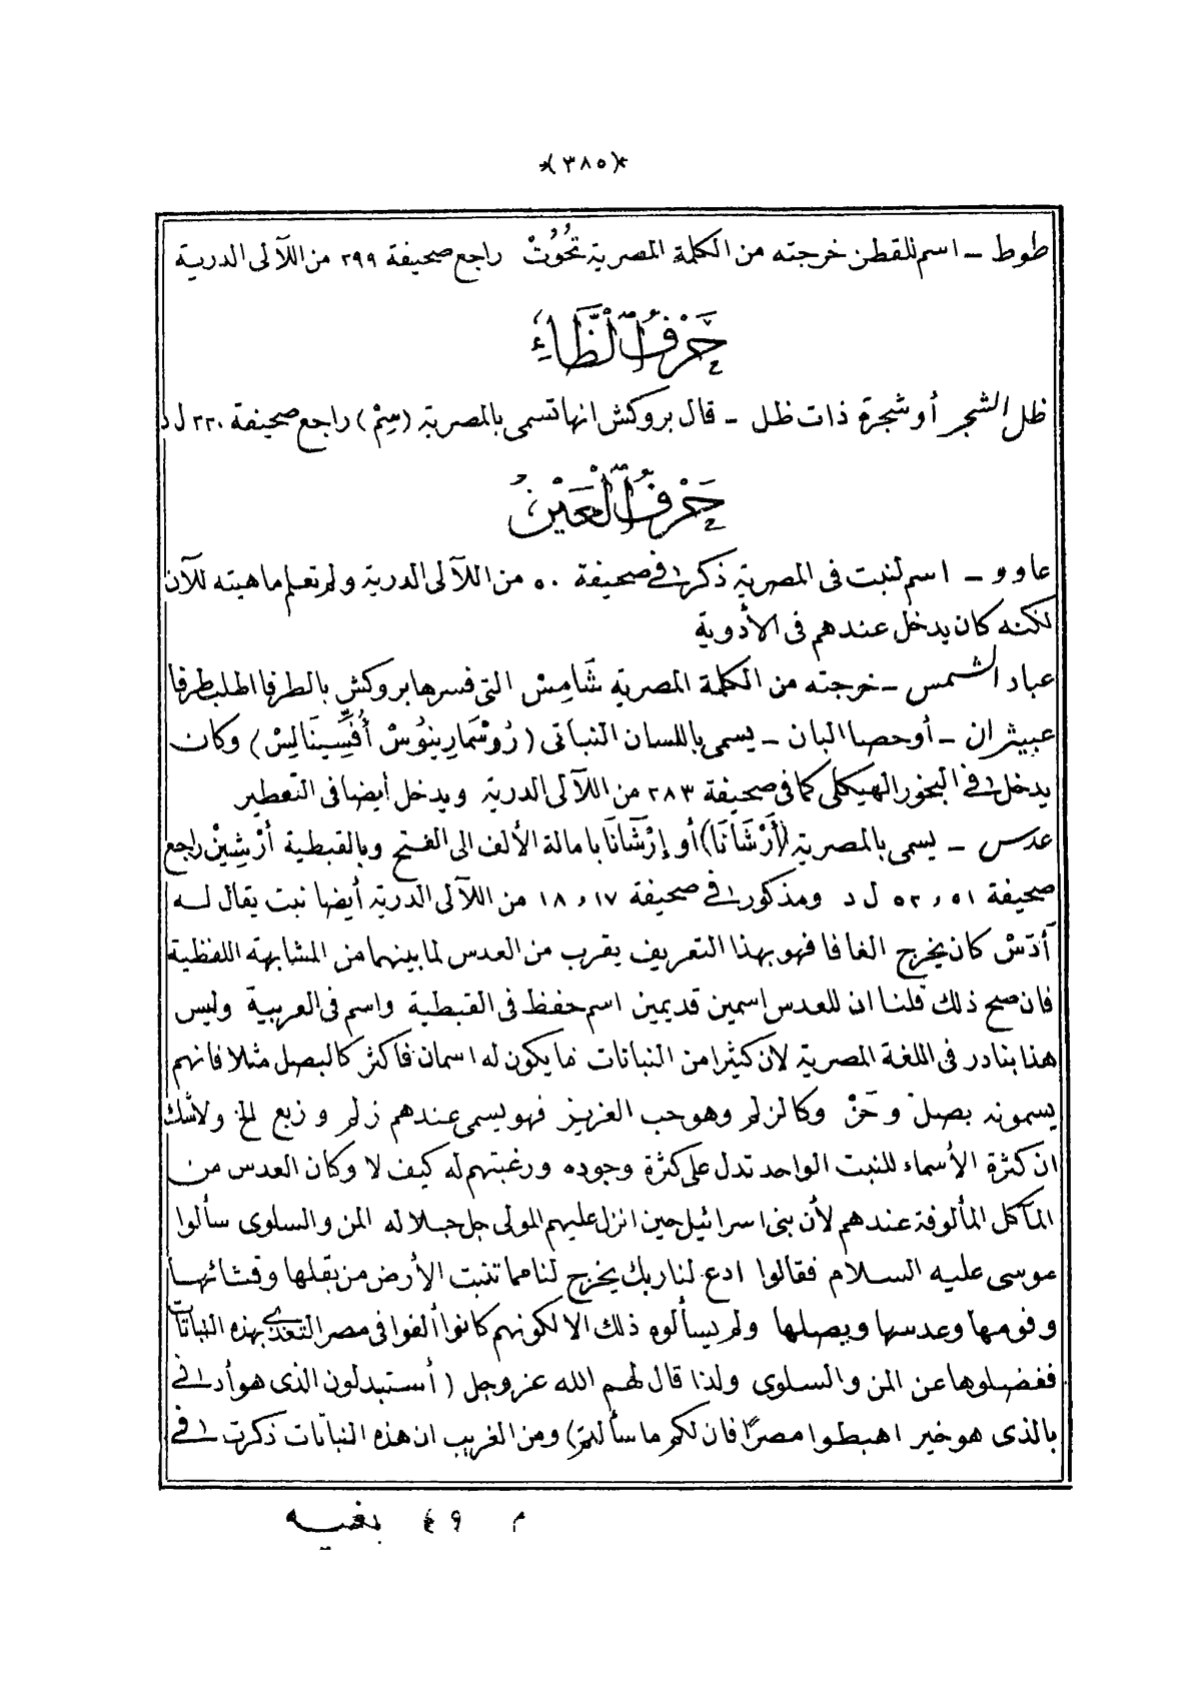 *(٣٨٥)*
طوط ـ اسم للقطن خرجته من الكلمة المصرية تحُوُتْ راجع صحيفة ٢٩٩ من اللآلى الدرية
حَرْفُ الظَّاءِ
ظل الشجر أو شجرة ذات ظل ـ قال بروكش انها تسمى بالمصرية (سِمْ) راجع صحيفة ٢٢٠ ل د
حَرْفُ الْعَيْنِ
عاوو ـ اسم لنبت فى المصرية ذكر فى صحيفة ٥٠ من اللآلى الدرية ولم تعلم ماهيته للآن
لكنه كان يدخل عندهم فى الأدوية
عباد الشمس ـ خرجته من الكلمة المصرية شَامِسْ التى فسرها بروكش بالطرفا اطلب طرفا
عبيثران ـ أو حصا البان ـ يسمى باللسان النباتى (رُوسْمَارِينُوسْ أُفِّسِّينَالِيسْ) وكان
يدخل فى البخور الهيكلى كما فى صحيفة ٢٨٣ من اللآلى الدرية ويدخل أيضا فى التعطير
عدس ـ يسمى بالمصرية (أَرْشَانَا) أو إرْشَانَا بامالة الألف الى الفتح وبالقبطية أرْشِيْن راجع
صحيفة ٥١ و ٥٢ ل د ومذكور فى صحيفة ١٧ و ١٨ من اللآلى الدرية أيضا نبت يقال له
آدَسْ كان يخرج الغافا فهو بهذا التعريف يقرب من العدس لما بينهما من المشابهة اللفظية
فان صح ذلك قلنا ان للعدس اسمين قديمين اسم حفظ فى القبطية واسم فى العربية وليس
هذا بنادر فى اللغة المصرية لان كثيرا من النباتات ما يكون له اسمان فاكثر كالبصل مثلا فانهم
يسمونه بصل وحَنْ وكالزلم وهو حب العزيز فهو يسمى عندهم زلم و زبع الخ ولا شك
ان كثرة الأسماء للنبت الواحد تدل على كثرة وجوده ورغبتهم له كيف لا وكان العدس من
المآكل المألوفة عندهم لأن بنى اسرائيل حين انزل عليهم المولى جل جلاله المن والسلوى سألوا
موسى عليه السلام فقالوا ادع لنا ربك يخرج لنا مما تنبت الأرض من بقلها وقثائها
وفومها وعدسها وبصلها ولم يسألوه ذلك الا لكونهم كانوا ألفوا فى مصر التغذى بهذه النباتات
ففضلوها عن المن والسلوى ولذا قال لهم الله عز وجل (أستبدلون الذى هو أدنى
بالذى هو خير اهبطوا مصرًا فان لكم ما سألتم) ومن الغريب ان هذه النباتات ذكرت فى
م ٤٩ بغيه